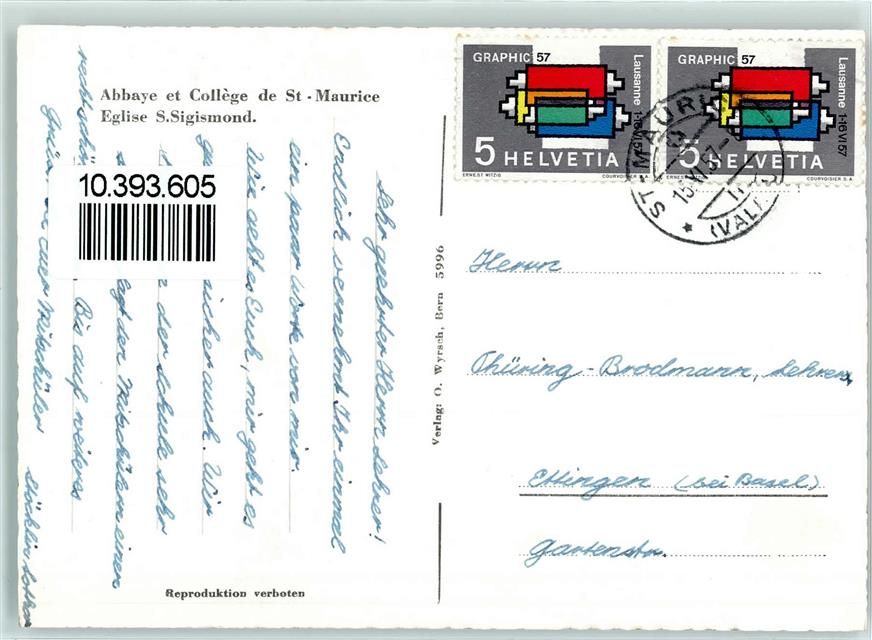 Abbaye et Collège de St - Maurice
Eglise S.Sigismond.
10.393.605
Sehr geehrter Herr Lehrer!
Endlich vernehmt Ihr einmal
ein paar Worte von mir.
Wie geht es Euch, mir geht es
sicher auch. Wir
der Schule sehr
den Mitschülern einen
Bis auf weiteres
Euer Mitschüler
Stöcklin
Reproduktion verboten
Verlag: O. Wyrsch, Bern 5996
GRAPHIC 57
Lausanne 1-16 VI 57
5 HELVETIA
ERNEST WITZIG COURVOISIER S.A.
GRAPHIC 57
Lausanne 1-16 VI 57
5 HELVETIA
ERNEST WITZIG COURVOISIER S.A.
ST-MAURICE
(VALAIS)
Herrn
Thüring-Brodmann, Lehrer,
Ettingen (bei Basel)
Gartenstr.